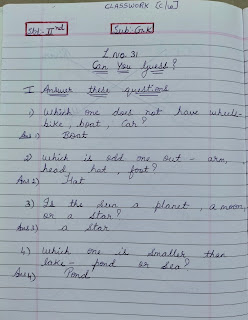 CLASSWORK [c/w]
Std-IInd
Sub-Gnk
L.No. 31
Can You Guess?
I Answer these questions
1) Which one does not have wheels-
bike, boat, car?
Ans 1) Boat
2) Which is odd one out - arm,
head, hat, foot?
Ans 2) Hat
3) Is the sun a planet, a moon,
or a star?
Ans 3) a star
4) Which one is smaller than
lake - pond or sea?
Ans 4) Pond